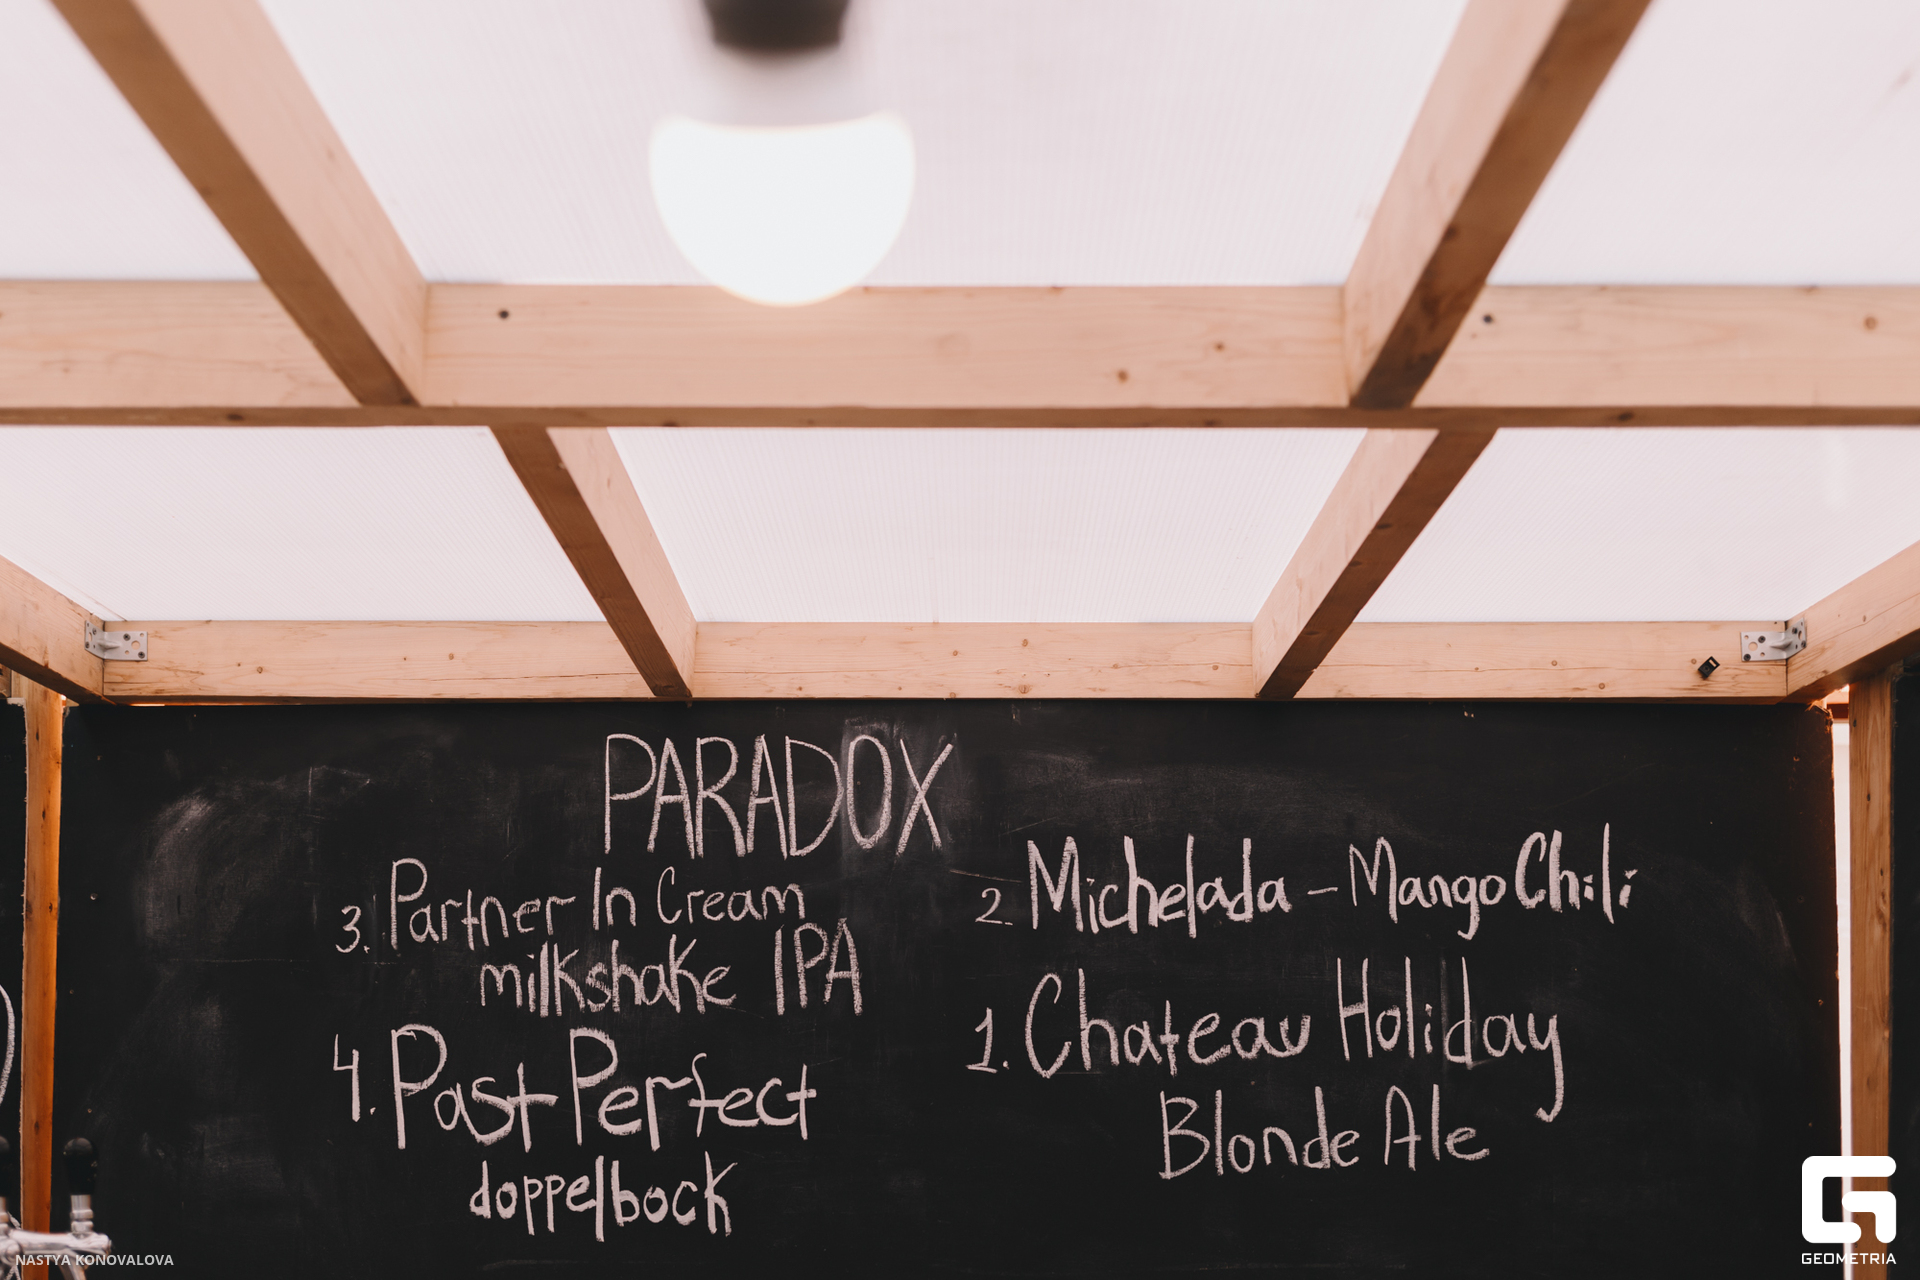 PARADOX
3. Partner In Cream
milkshake IPA
4. Past Perfect
doppelbock
2. Michelada - Mango Chili
1. Chateau Holiday
Blonde Ale
NASTYA KONOVALOVA
GEOMETRIA